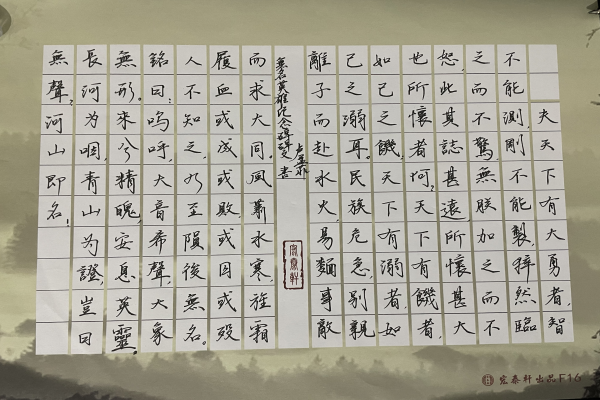 夫天下有大勇者,智
不能測,剛不能製,猝然臨
之而不驚,無朕加之而不
怒,此其誌甚遠,所懷甚大
也所懷者何,天下有饑者,
如己之饑,天下有溺者如
己之溺耳。民族危急,别親
離子而赴水火,易麵事敵
無名英雄紀念碑碑文 書
而求大同。風蕭水寒,旌霜
履血或成或敗,或囚或殁
人不知之,乃至隕後無名。
銘曰:嗚呼,大音希聲,大象
無形。來兮精魄,安息英靈。
長河为咽,青山为證,豈曰
無聲?河山即名!
宏泰軒出品F16